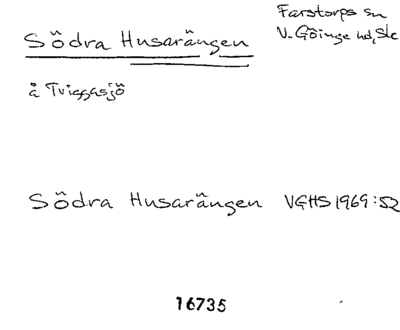 Södra Husarängen
Farstorps sn
V. Göinge hd, Sk
å Tviggasjö
Södra Husarängen VGHS 1969:52
16735